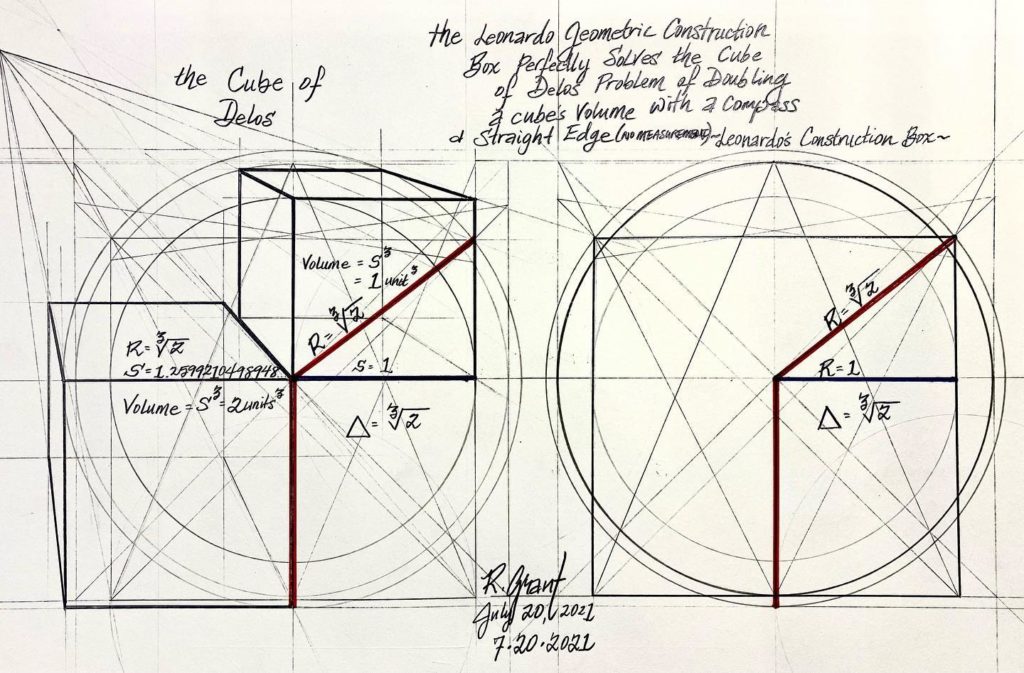 the Cube of
Delos
the Leonardo Geometric Construction
Box perfectly Solves the Cube
of Delos Problem of Doubling
a cube's Volume with a Compass
& Straight Edge (NO MEASUREMENT) ~Leonardo's Construction Box~
Volume = S³
= 1 unit³
R = ∛2
S = 1
R = ∛2
S = 1.2599210498948
Volume = S³ = 2 units³
△ = ∛2
R = ∛2
R = 1
△ = ∛2
R. Grant
July 20, 2021
7·20·2021